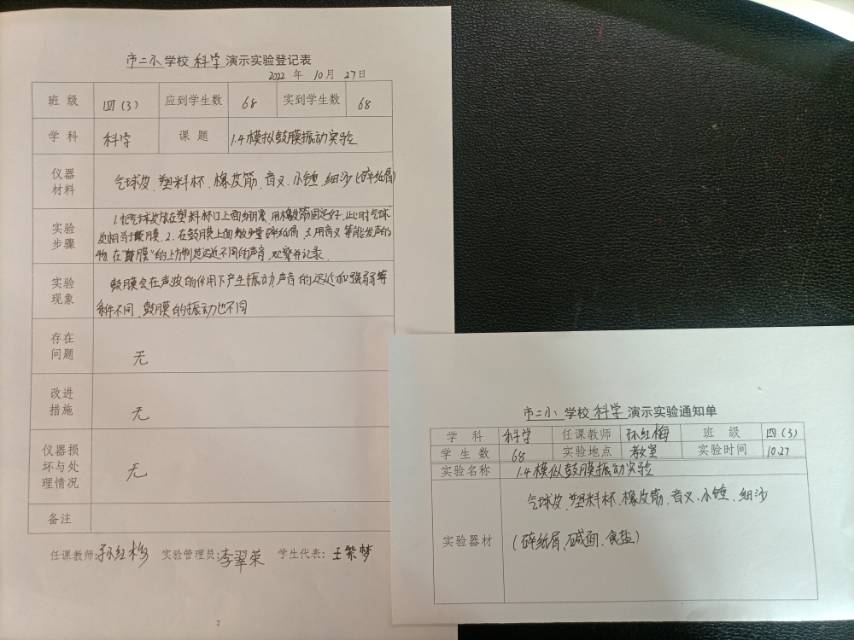 市二小学校科学演示实验登记表
2022 年 10 月 27 日
班级 四(3) 应到学生数 68 实到学生数 68
学科 科学 课题 1.4模拟鼓膜振动实验
仪器材料 气球皮、塑料杯、橡皮筋、音叉、小锤、细沙(碎纸屑)
实验步骤 1.把气球皮放在塑料杯口上面绷紧,用橡皮筋固定好,此时气球
皮相当于鼓膜.2.在鼓膜上面撒少量碎纸屑,用音叉等能发声的
物在"鼓膜"的上方制造远近不同的声音,观察并记录.
实验现象 鼓膜会在声波的作用下产生振动,声音的远近和强弱等
条件不同,鼓膜的振动也不同
存在问题 无
改进措施 无
仪器损坏与处理情况 无
备注
任课教师:孙红梅 实验管理员:李翠荣 学生代表:王繁梦
2
市二小学校科学演示实验通知单
学科 科学 任课教师 孙红梅 班级 四(3)
学生数 68 实验地点 教室 实验时间 10.27
实验名称 1.4模拟鼓膜振动实验
实验器材 气球皮、塑料杯、橡皮筋、音叉、小锤、细沙
(碎纸屑、碱面、食盐)